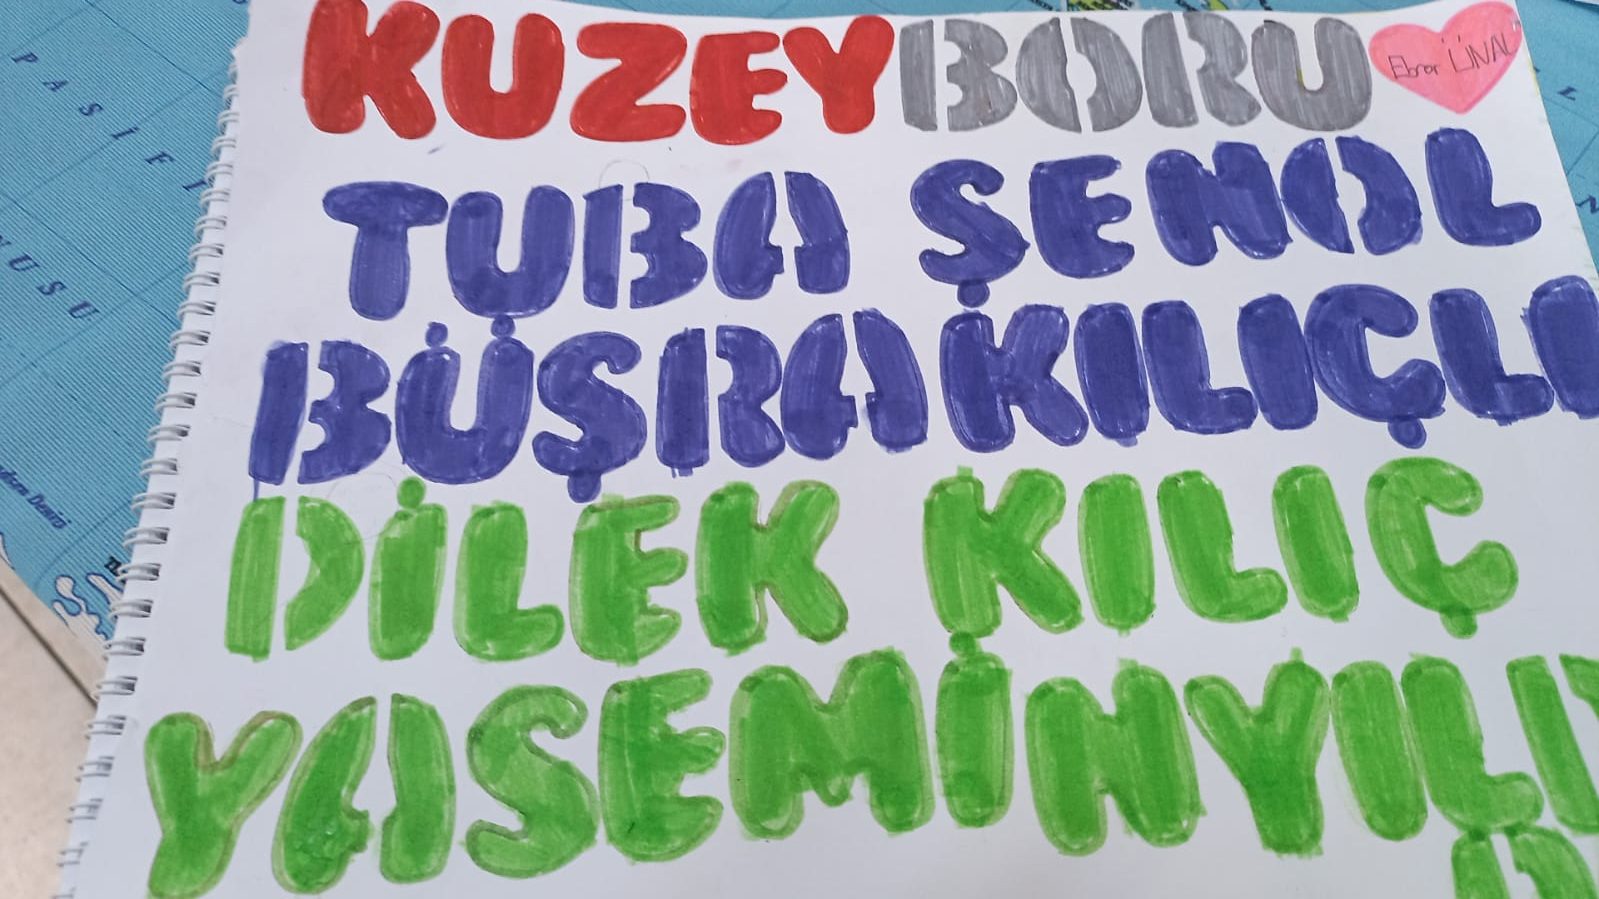 KUZEYBORU
Ebrar ÜNAL
TUBA ŞENOL
BÜŞRA KILIÇLI
DİLEK KILIÇ
YASEMİN YILI
PASİFİ
NUSU